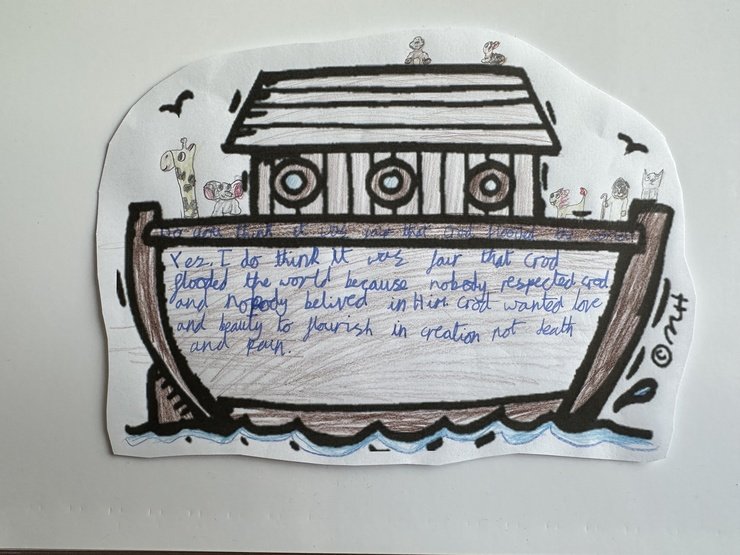 Do you think it was fair that God flooded the world
Yes, I do think it was fair that God
flooded the world because nobody respected God
and nobody belived in Him God wanted love
and beauty to flourish in creation not death
and pain.
© MH